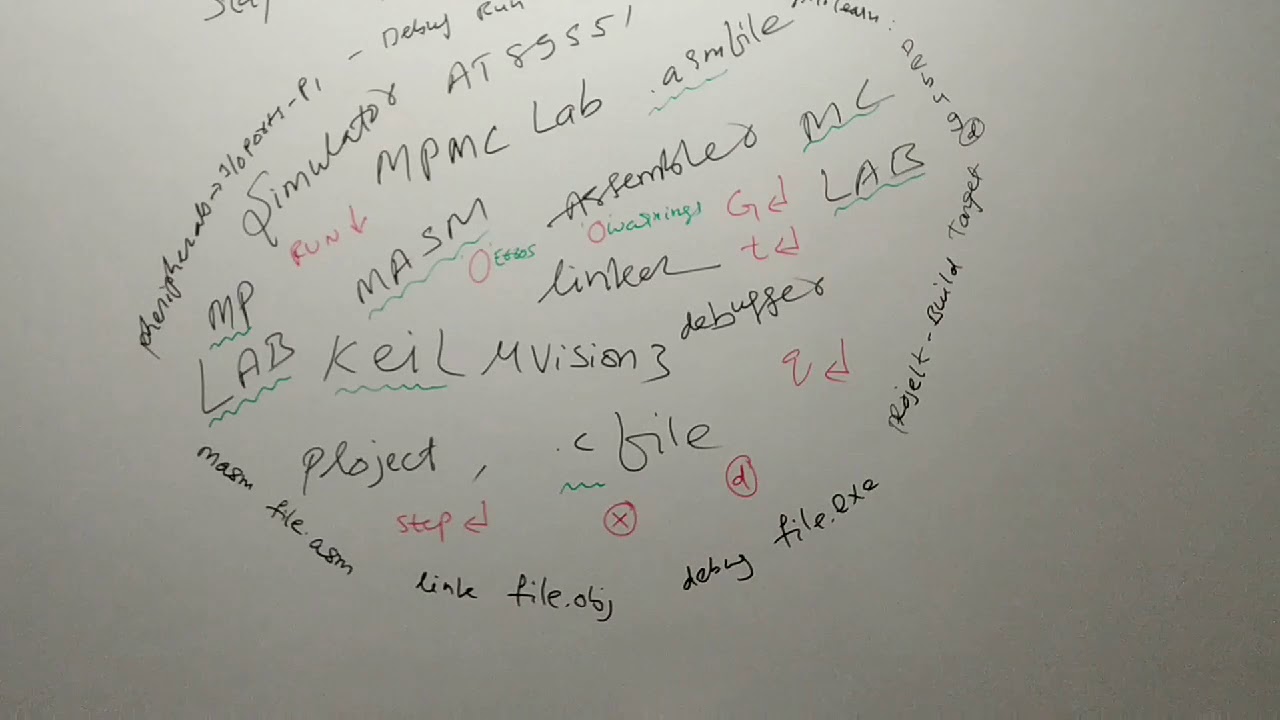 Debug Run
pheripherab→I/O Ports-P1 -
Simulator AT89551
MPMC Lab .asmfile
Debug (d)
MASM Assembler MC
RUN↓
0 Erros 0 warnings G↲ LAB
MP linker t↲
LAB Keil μVision3 debugger
q↲
project, .c file
step↲ (x) (d)
masm file.asm
link file.obj
debug file.exe
project - Build Target